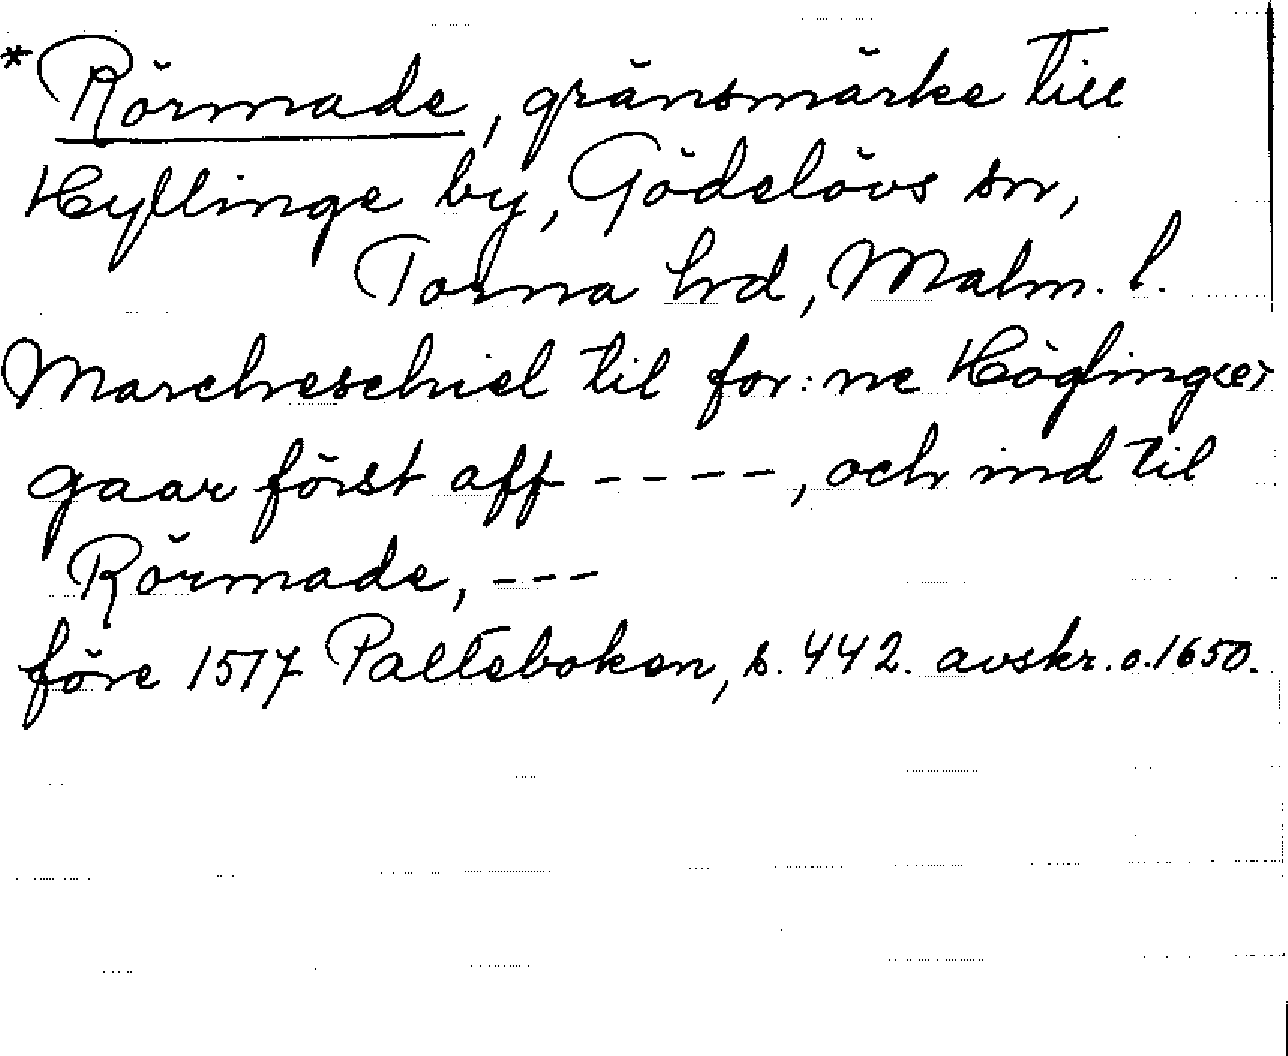 *Rörmade, gränsmärke till
Hyllinge by, Gödelövs sn,
Torna hd, Malm. l.
Marcheschiel til for: ne Höglinge(e)
gaar först aff - - - -, och ind til
Rörmade, - - -
före 1517 Palteboken, s. 442. avskr. o. 1650.